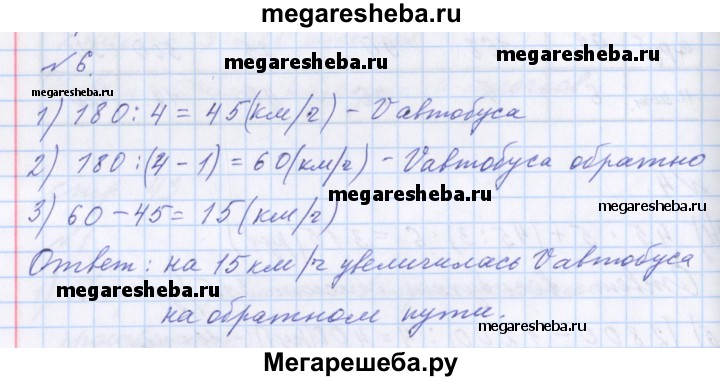 megaresheba.ru
№ 6.
megaresheba.ru
megaresheba.ru
megaresheba.ru
1) 180 : 4 = 45 (км/ч) - Vавтобуса
2) 180 : (4 - 1) = 60 (км/ч) - Vавтобуса обратно
megaresheba.ru
megaresheba.ru
3) 60 - 45 = 15 (км/ч)
Ответ: на 15 км/ч увеличилась Vавтобуса
megaresheba.ru
на обратном пути.
megaresheba.ru
Мегарешеба.ру